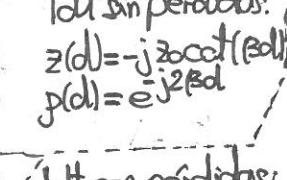 sin pérdidas:
z(d)=-jz₀cot(βd)
ρ(d)=e^-j2βd